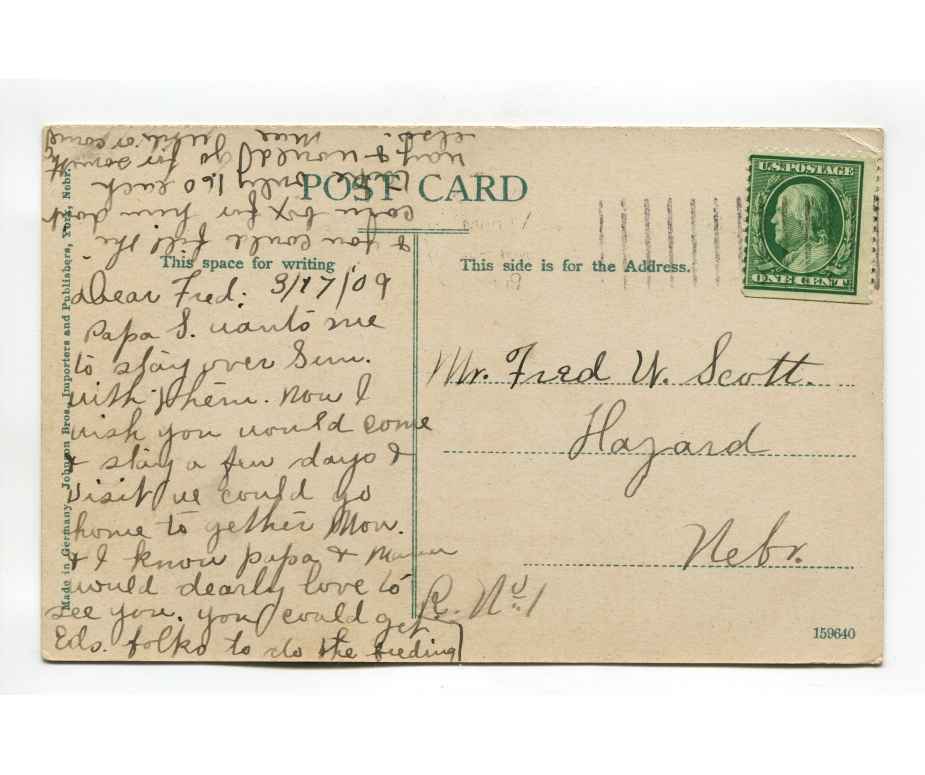 POST CARD
This space for writing
This side is for the Address.
U.S. POSTAGE
ONE CENT
Made in Germany. Johnson Bros. Importers and Publishers, York, Nebr.
159640
Dear Fred: 3/17/09
Papa S. wants me
to stay over Sun.
with them. Now I
wish you would come
& stay a few days &
visit we could go
home to gether Mon.
& I know papa &
would dearly love to
see you. you could get
Eds. folks to do the feeding
& you could fill the
corn box for him
only 1.60 each
way & would go for
else.
Mr. Fred W. Scott.
Hazard
Nebr.
R. No 1